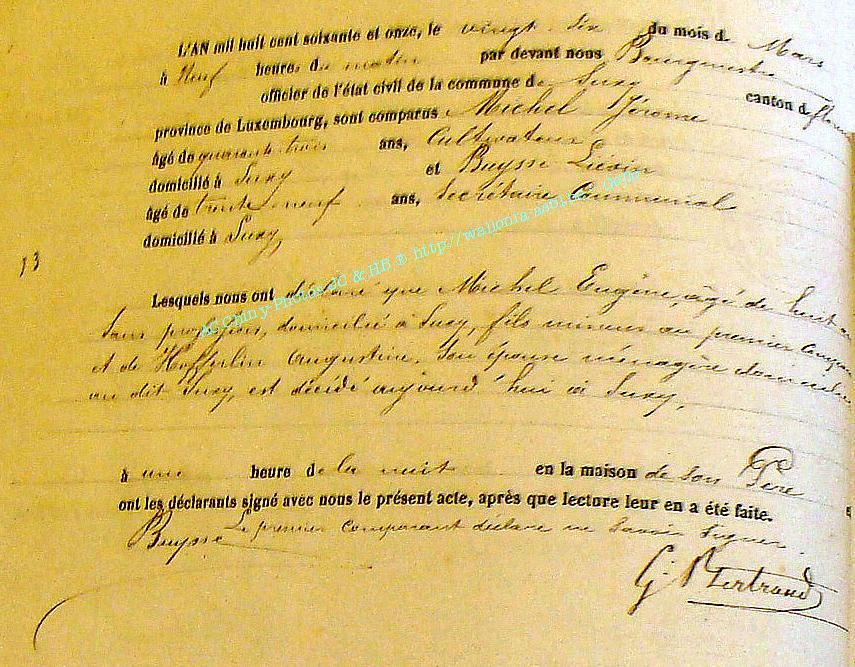 L'AN mil huit cent soixante et onze, le vingt six du mois de Mars
à Neuf heures du matin par devant nous Bourgmestre
officier de l'état civil de la commune de Suxy canton de
province de Luxembourg, sont comparus Michel Jérome
âgé de quarante trois ans, Cultivateur
domicilié à Suxy et Buysse Liévin
âgé de trente neuf ans, Secrétaire Communal
domicilié à Suxy
13
Lesquels nous ont déclaré que Michel Eugène, âgé de huit
Sans profession, domicilié à Suxy, fils mineur au premier
et de Hofferlin Augustine, son épouse ménagère
au dit Suxy, est décédé aujourd'hui à Suxy,
à une heure de la nuit en la maison de son Père
ont les déclarants signé avec nous le présent acte, après que lecture leur en a été faite.
Le premier comparant déclare ne Savoir Signer.
Buysse
G. Bertrand
AC Chiny Photos JC & HB @ http://wallonia-asbl.be